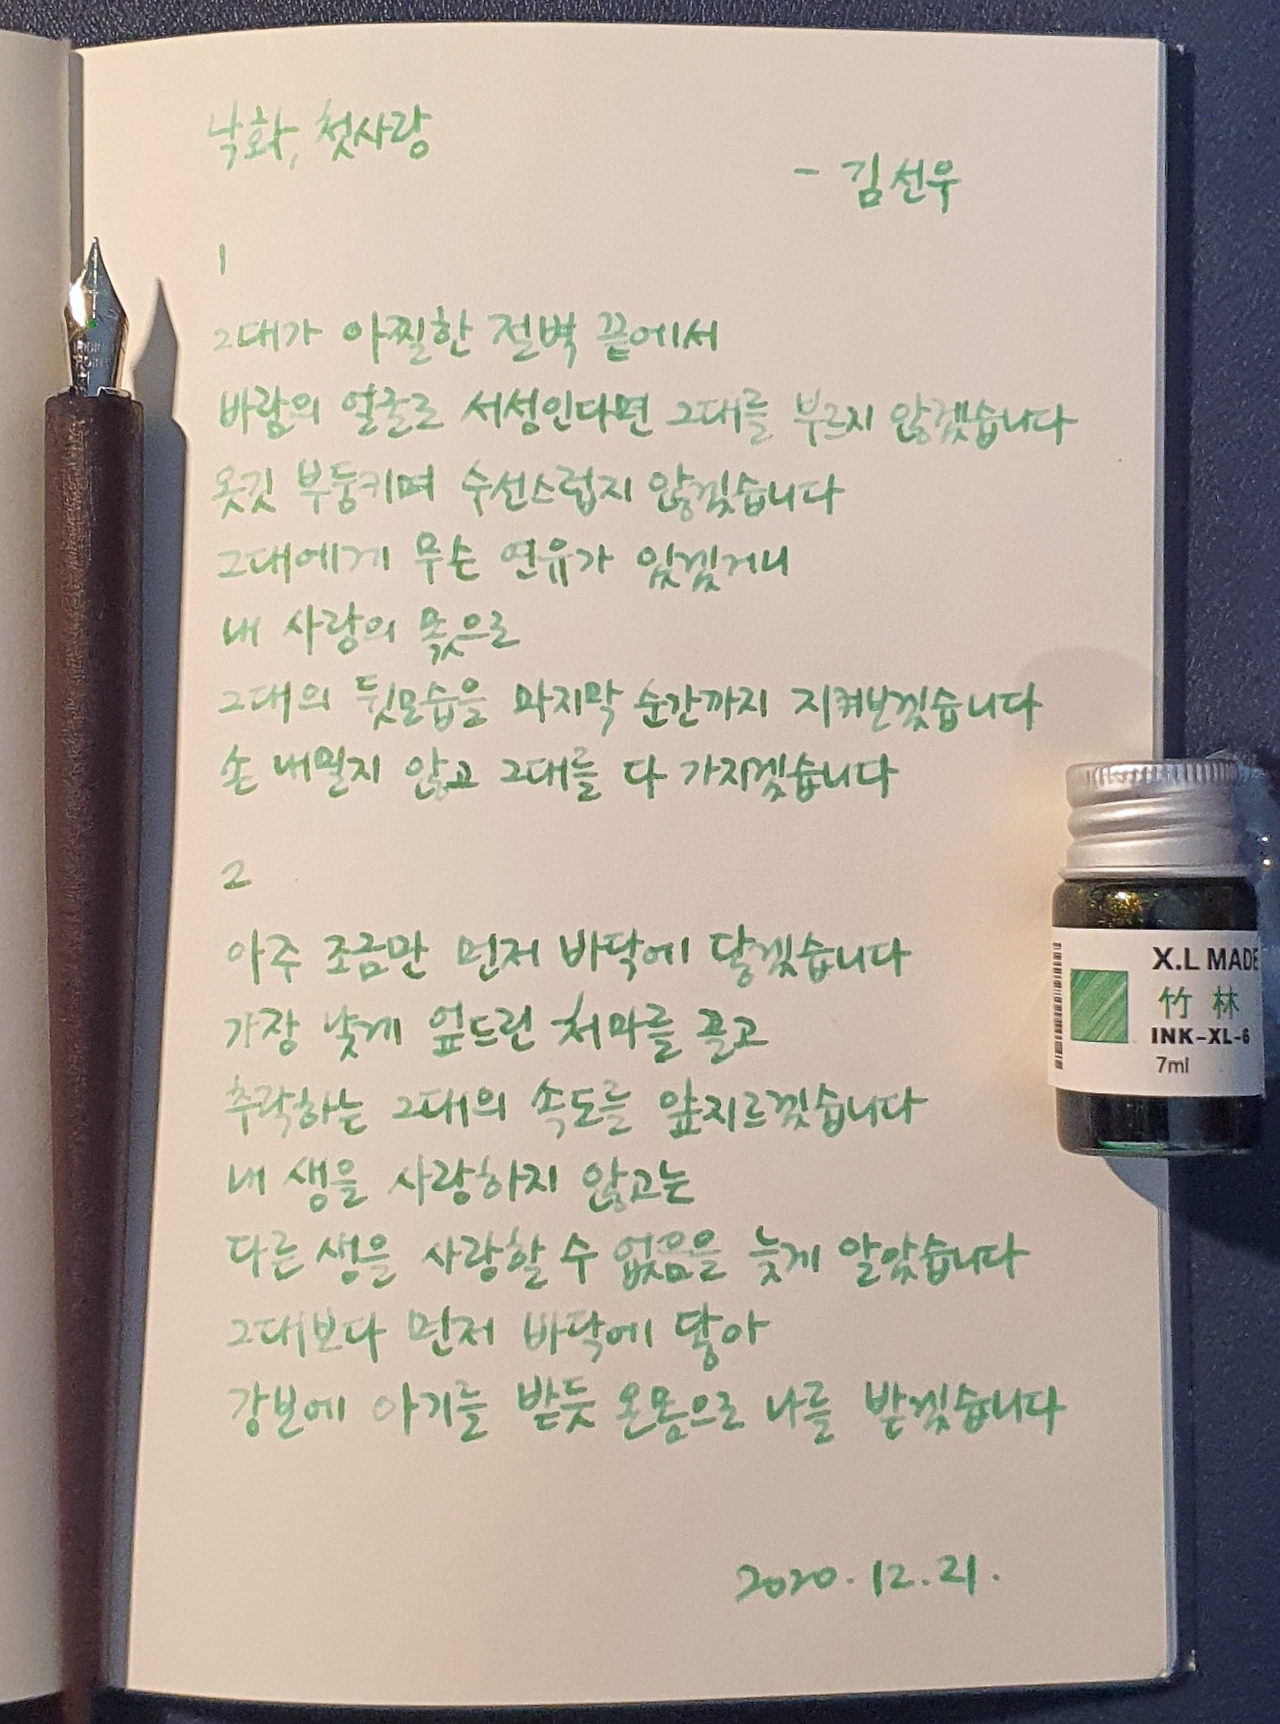 낙화, 첫사랑
- 김선우
1
그대가 아찔한 절벽 끝에서
바람의 얼굴로 서성인다면 그대를 부르지 않겠습니다
옷깃 부둥키며 수선스럽지 않겠습니다
그대에게 무슨 연유가 있겠거니
내 사랑의 몫으로
그대의 뒷모습을 마지막 순간까지 지켜보겠습니다
손 내밀지 않고 그대를 다 가지겠습니다
2
아주 조금만 먼저 바닥에 닿겠습니다
가장 낮게 엎드린 처마를 끌고
추락하는 그대의 속도를 앞지르겠습니다
내 생을 사랑하지 않고는
다른 생을 사랑할 수 없음을 늦게 알았습니다
그대보다 먼저 바닥에 닿아
강보에 아기를 받듯 온몸으로 나를 받겠습니다
2020. 12. 21.
X.L MADE
竹林
INK-XL-6
7ml